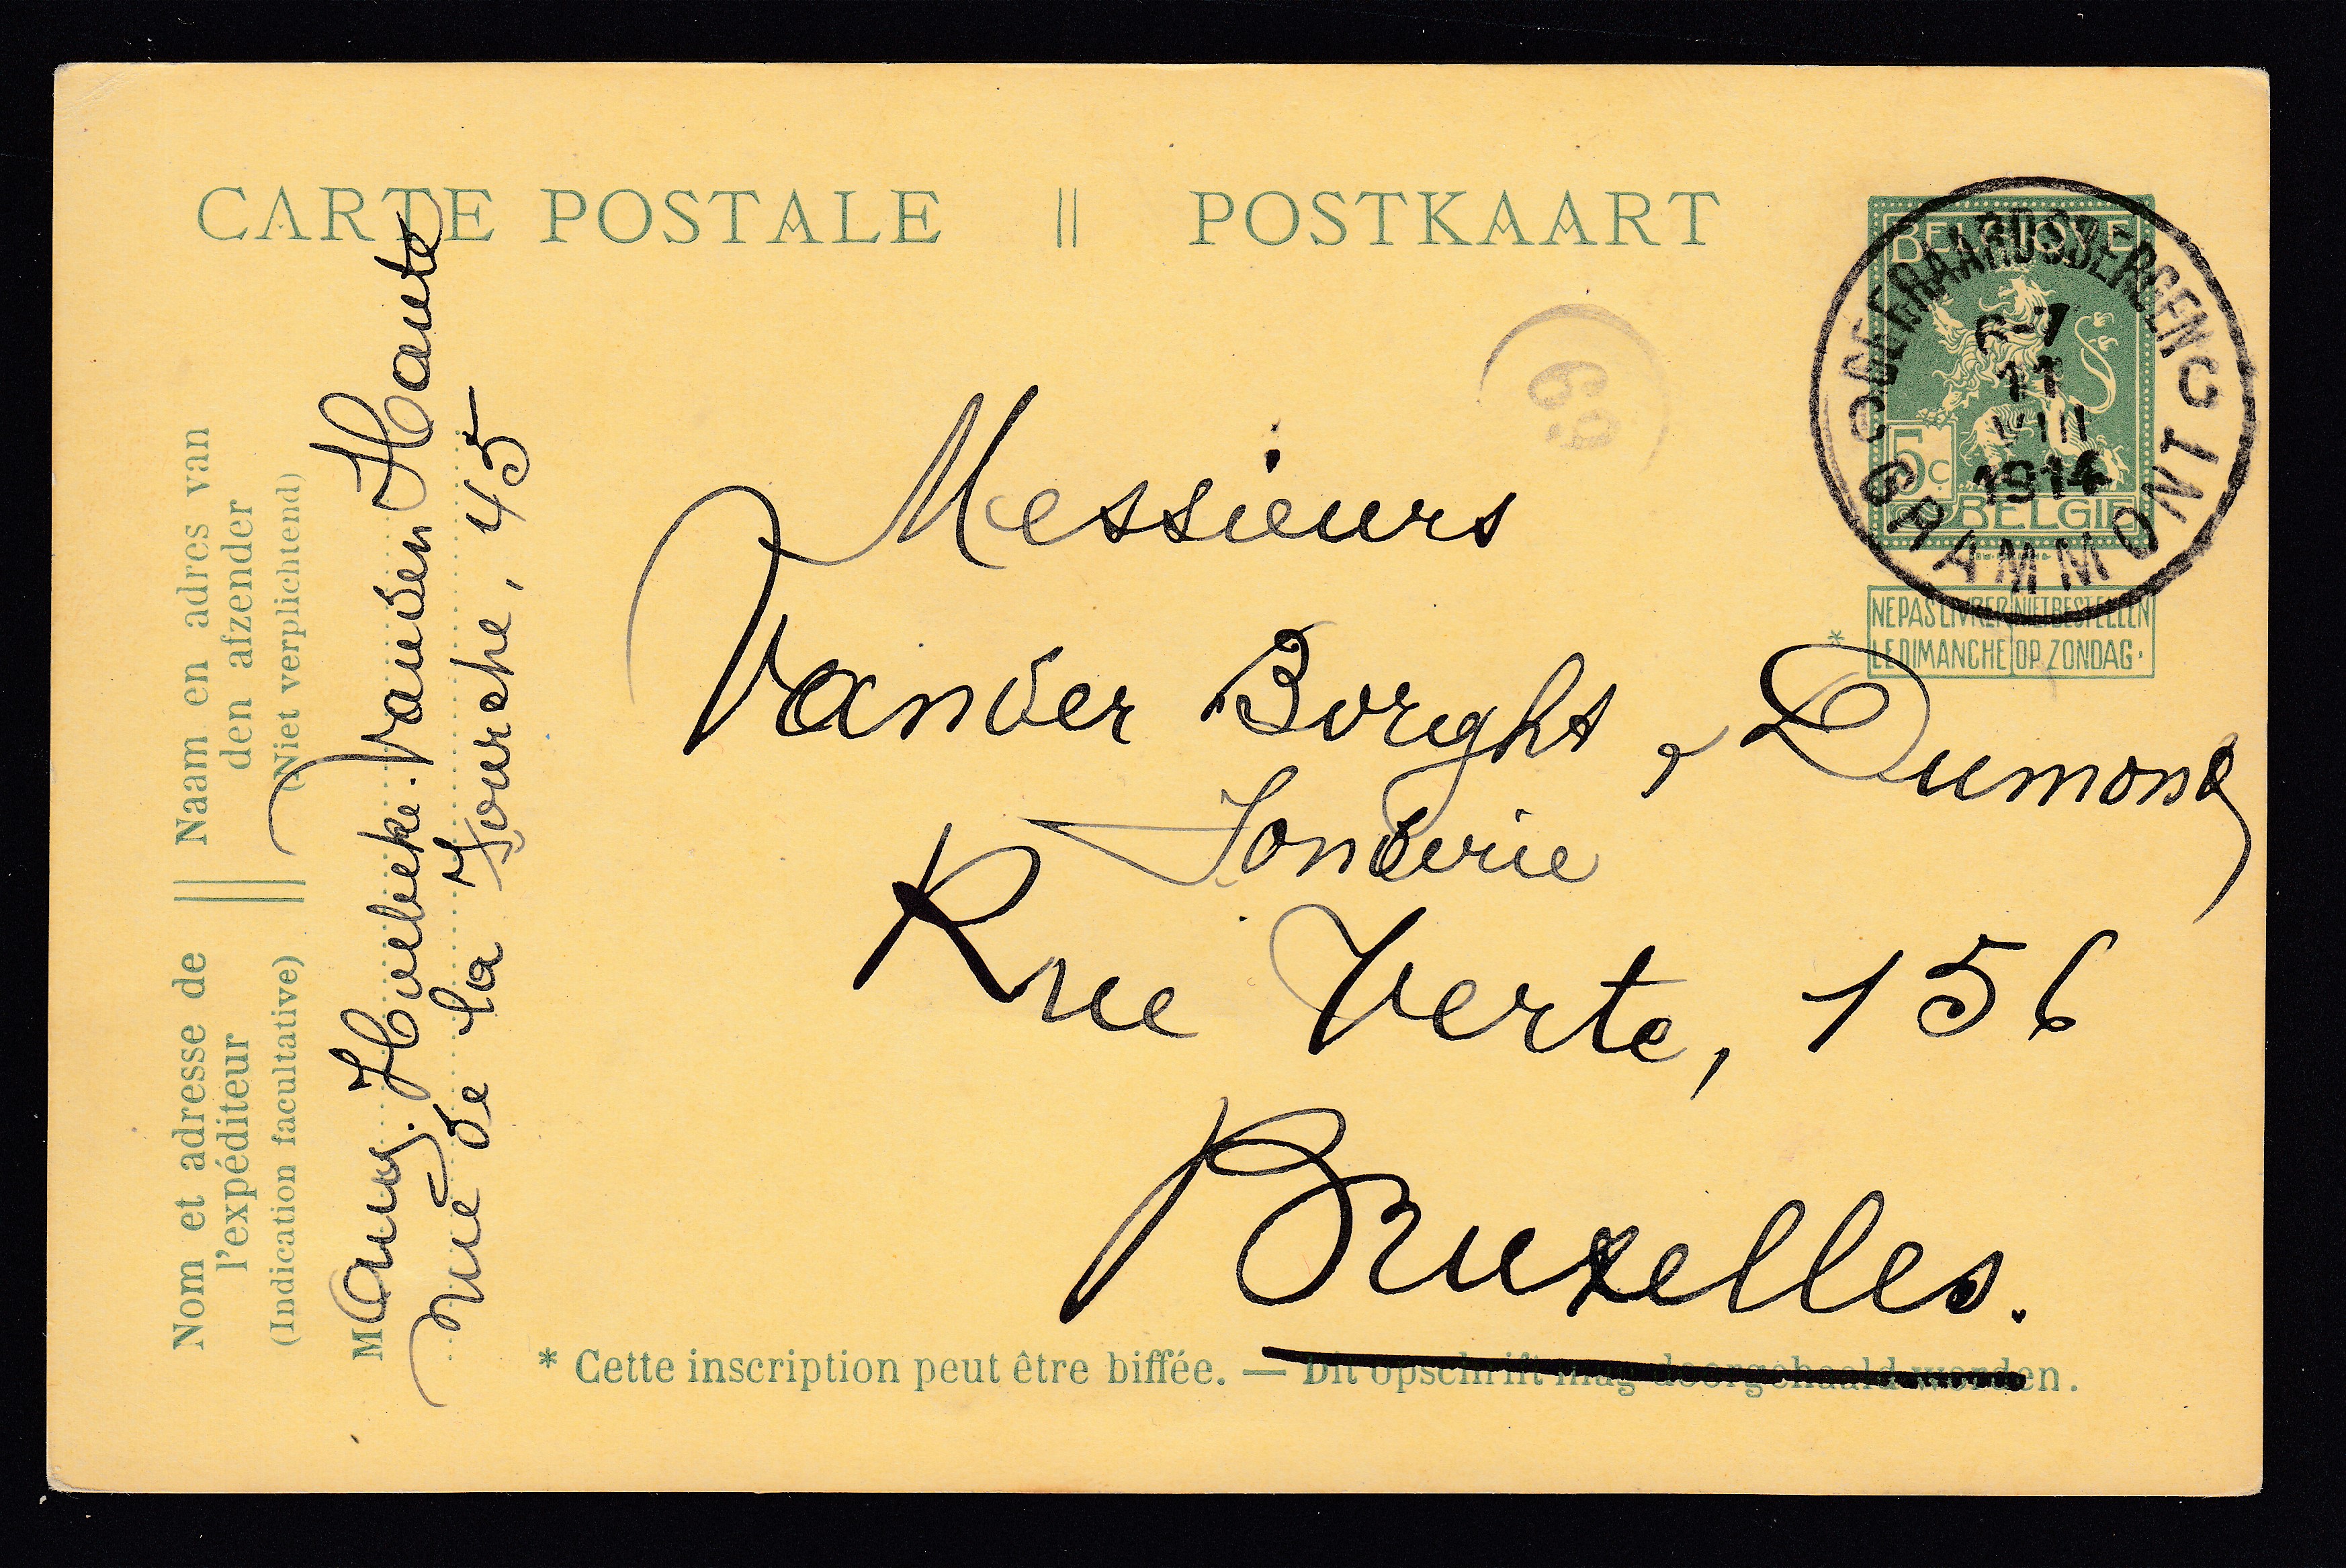 CARTE POSTALE || POSTKAART
BELGIQUE
5c
BELGIË
GEERAARDSBERGEN
6-7
11
VIII
1914
GRAMMONT
NE PAS LIVRER NIET BESTELLEN
* LE DIMANCHE OP ZONDAG.
69
Messieurs
Vander Borght & Dumond
Fonderie
Rue Verte, 156
Bruxelles.
* Cette inscription peut être biffée. — Dit opschrift mag doorgehaald worden.
Nom et adresse de || Naam en adres van
l'expéditeur den afzender
(Indication facultative) (Niet verplichtend)
M Aug. Hovelieke. Vanden Haute
rue de la Fourche, 45